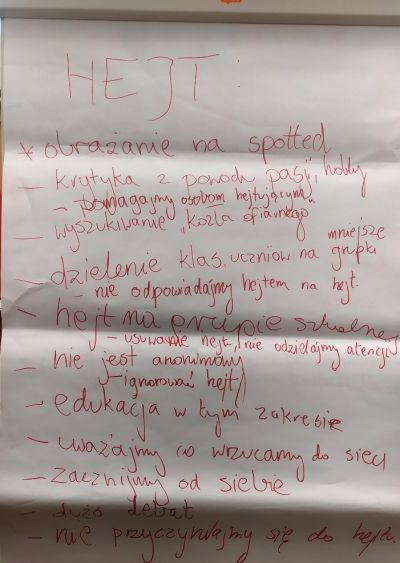 HEJT :
* obrażanie na spotted
– krytyka z powodu pasji, hobby
– pomagajmy osobom hejtującym
– wyszukiwanie „kozła ofiarnego"
– dzielenie klas, uczniów na mniejsze grupki
– nie odpowiadajmy hejtem na hejt.
– hejt na grupie szkolnej
– usuwanie hejt/nie udzielajmy atencji
– nie jest anonimowy
– ignorować hejt
– edukacja w tym zakresie
– uważajmy co wrzucamy do sieci
– zacznijmy od siebie
– dużo debat
– nie przyczyniajmy się do hejtu.